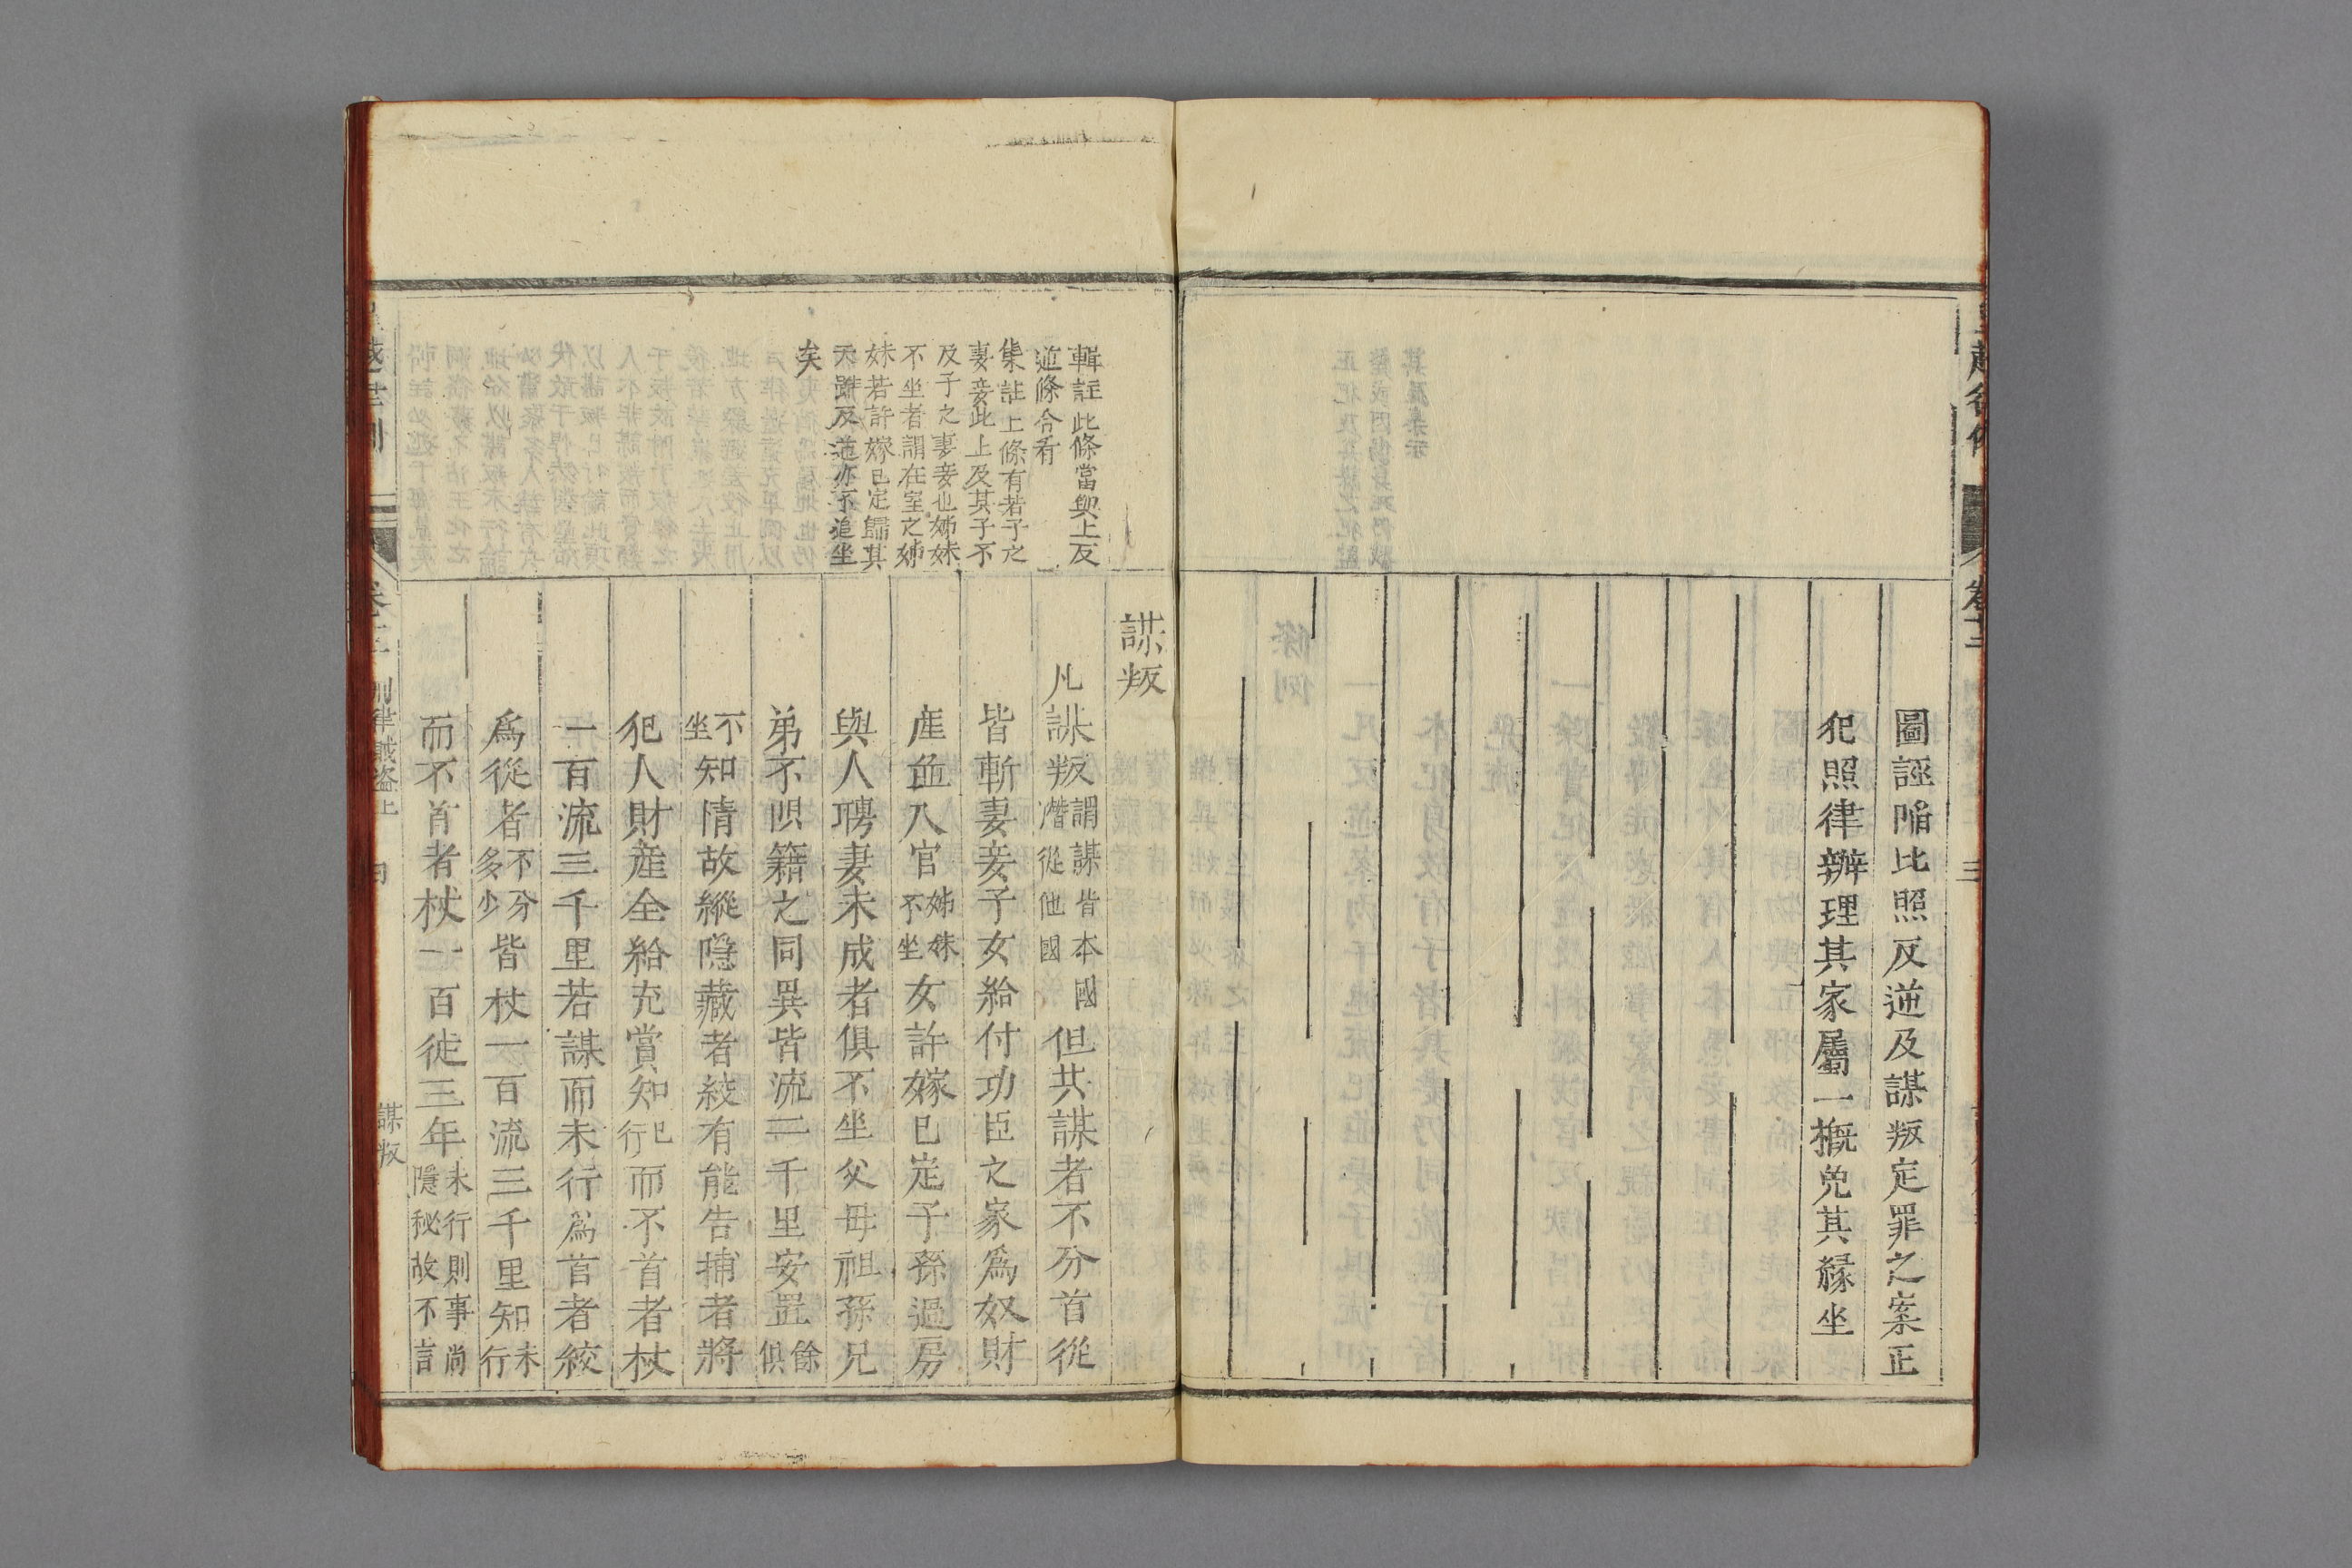 圖誣陷比照反逆及謀叛定罪之案正
犯照律辦理其家屬一概免其緣坐
輯註此條當與上反
逆條合看
集註上條有若子之
妻妾此上及其子不
及子之妻妾也姊妹
不坐者謂在室之姊
妹若許嫁已定歸其
夫雖反逆亦不追坐
矣
謀叛
凡謀叛謂謀背本國潛從他國但共謀者不分首從
皆斬妻妾子女給付功臣之家爲奴財
產並入官姊妹不坐女許嫁已定子孫過房
與人聘妻未成者俱不坐父母祖孫兄
弟不限籍之同異皆流二千里安置餘俱
不坐知情故縱隱藏者絞有能告捕者將
犯人財產全給充賞知已行而不首者杖
一百流三千里若謀而未行爲首者絞
爲從者不分多少皆杖一百流三千里知未行
而不首者杖一百徒三年未行則事尚隱秘故不言
刑律賊盜上
謀叛